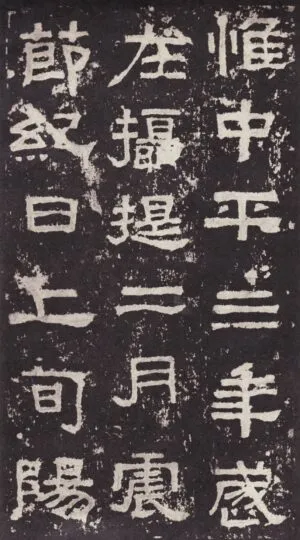 惟中平三年歳
在攝提二月震
節紀日上旬陽